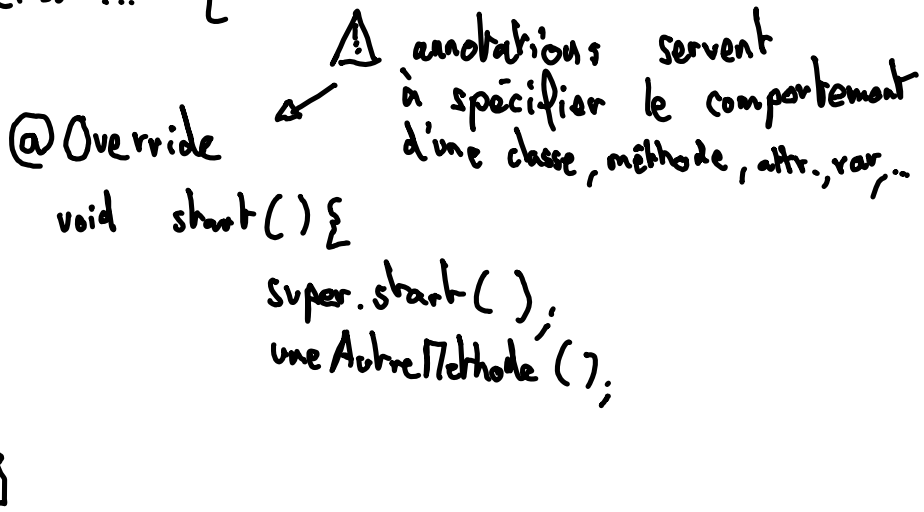 ⚠ annotations servent
à spécifier le comportement
d'une classe, méthode, attr., var, ...
@Override
void start() {
super.start();
uneAutreMethode();